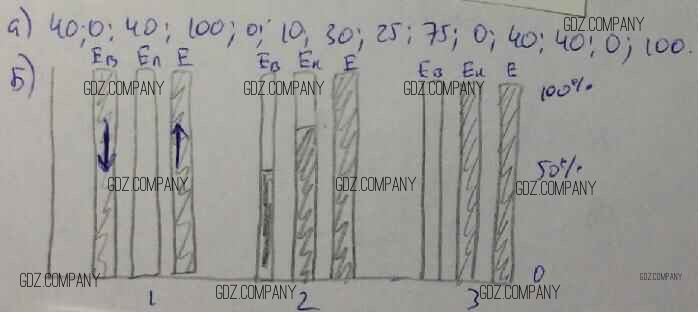 GDZ.COMPANY
а) 40; 0; 40; 100; 0; 10; 30; 25; 75; 0; 40; 40; 0; 100.
б) Ев Еп Е Ев Еп Е Ев Еп Е
GDZ.COMPANY GDZ.COMPANY GDZ.COMPANY 100%
50%
GDZ.COMPANY GDZ.COMPANY GDZ.COMPANY
0
GDZ.COMPANY GDZ.COMPANY GDZ.COMPANY GDZ.COMPANY
1 2 3